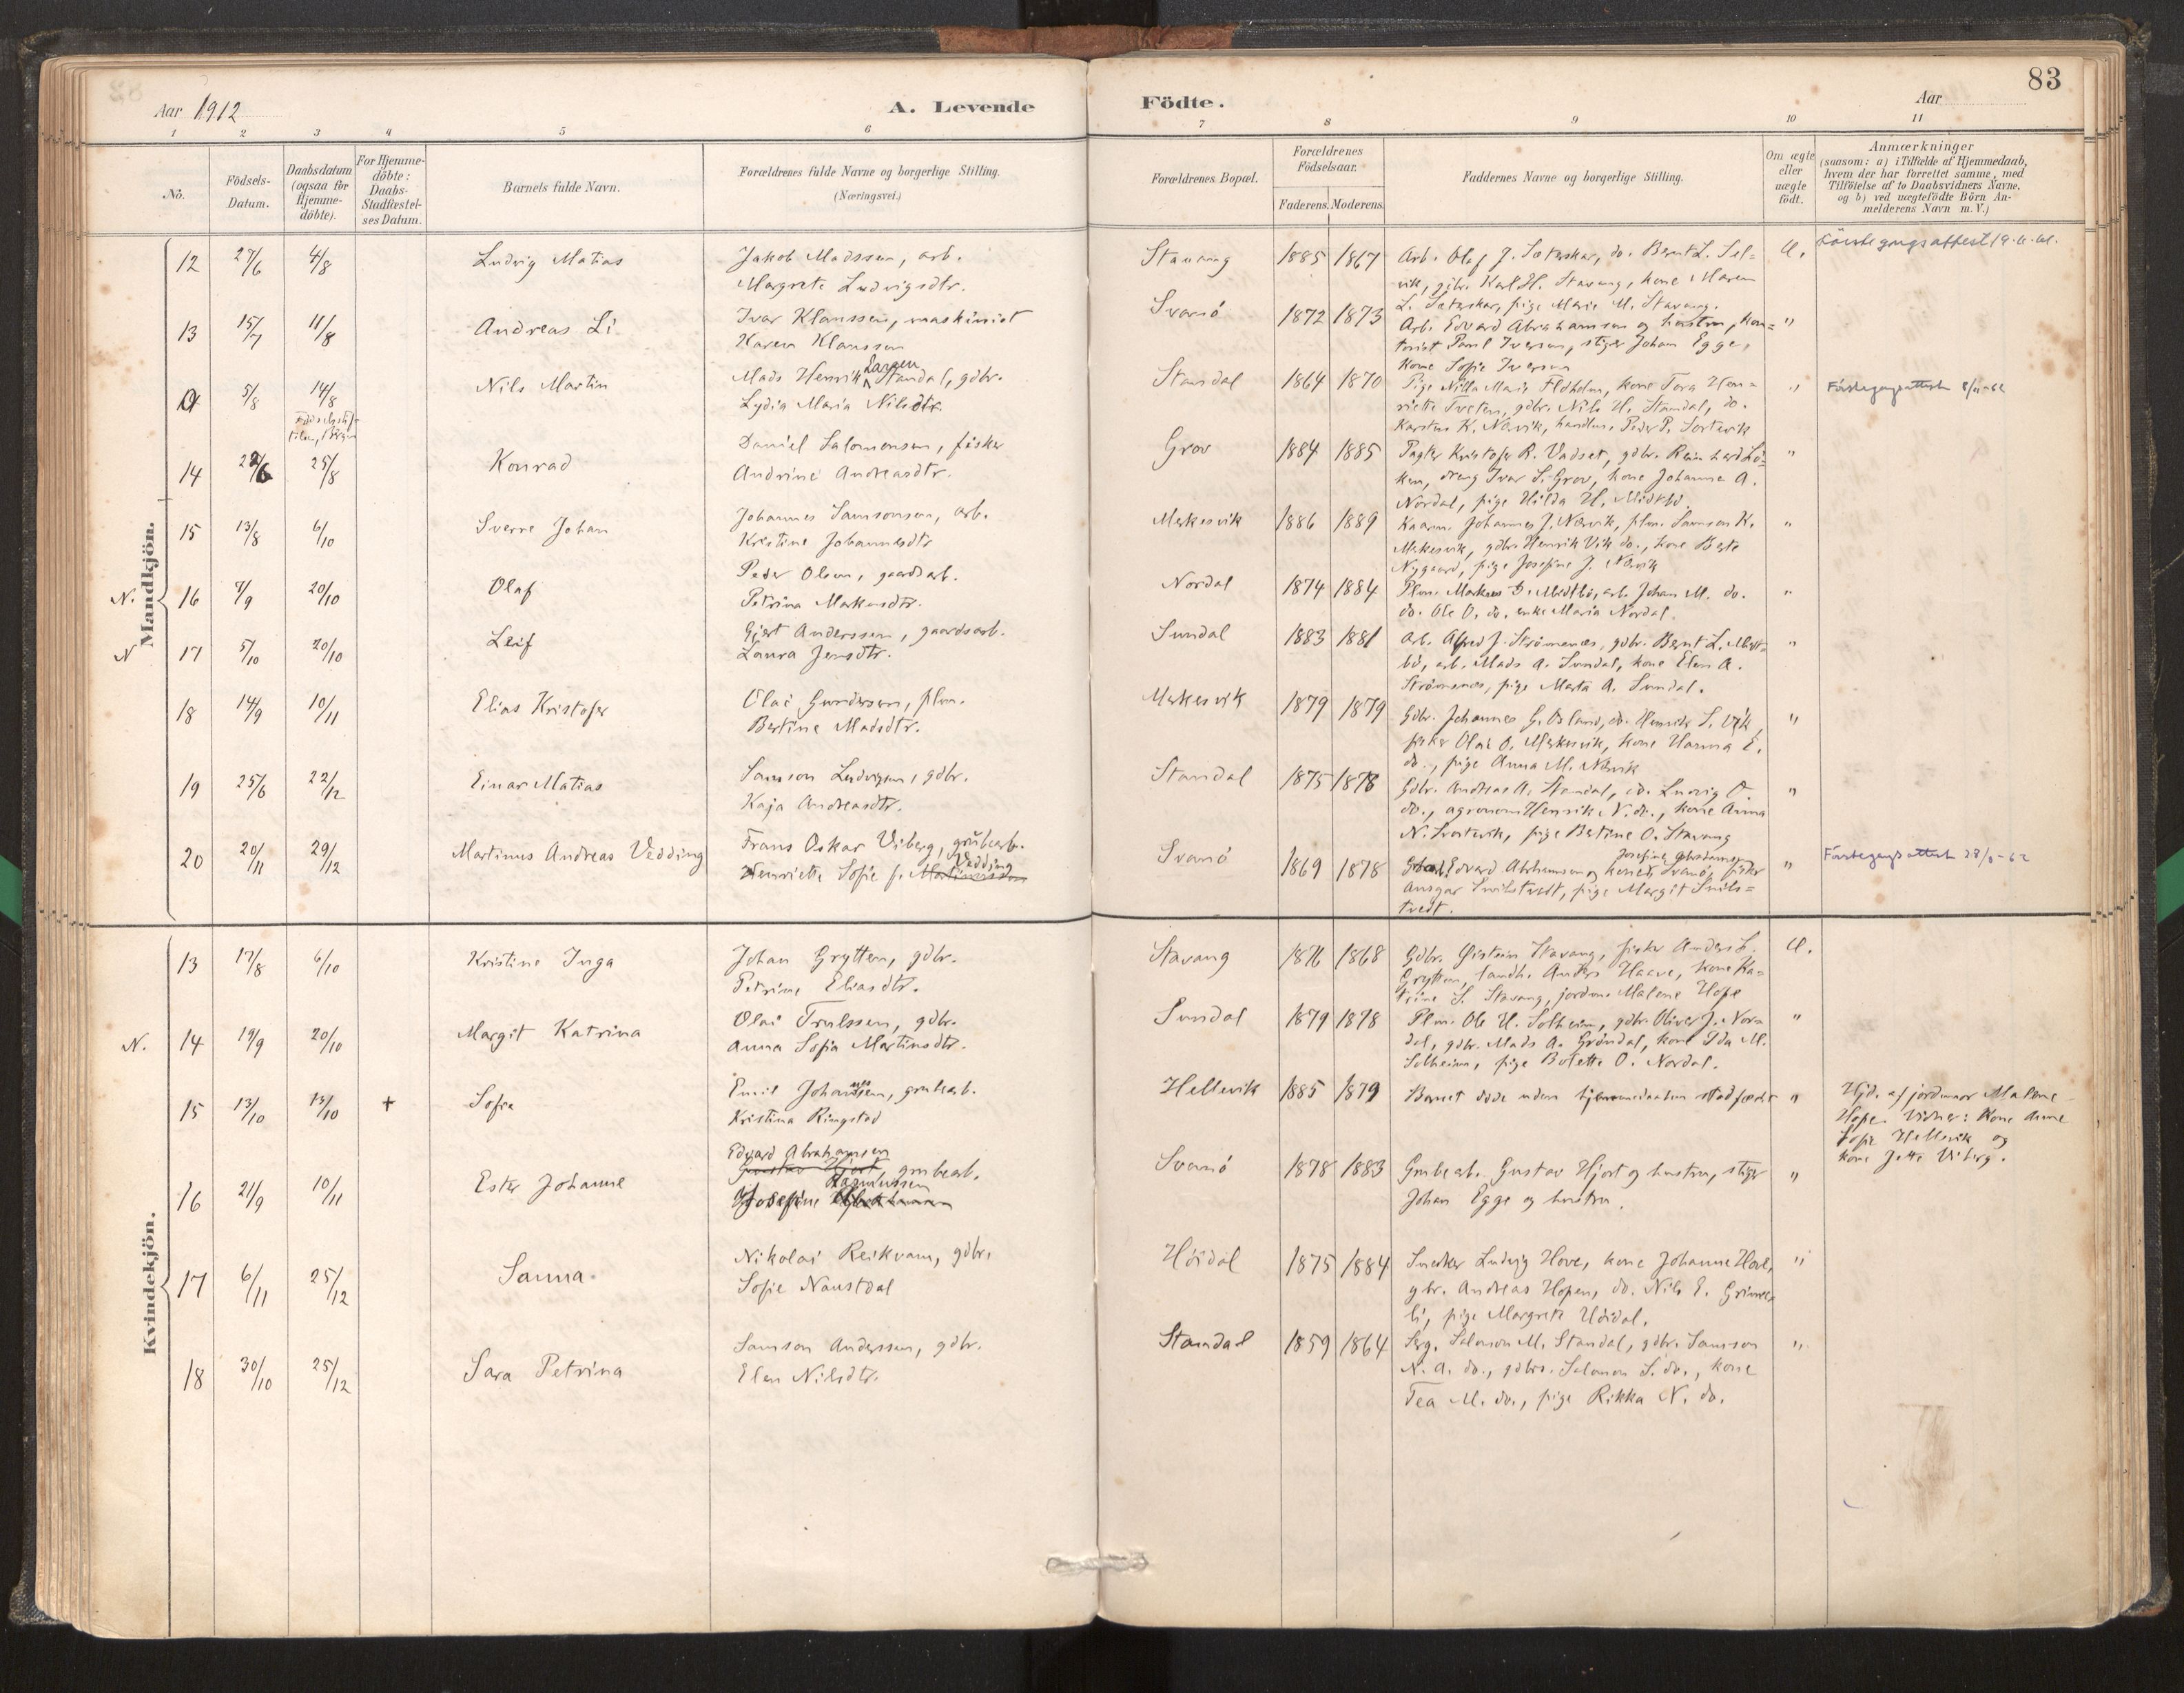 83
Aar 1912
A. Levende Födte.
Aar
1 2 3 4 5 6 7 8 9 10 11
No.
Födsels-Datum.
Daabsdatum (ogsaa for Hjemme-döbte).
For Hjemme-döbte: Daabs-Stadfæstel-ses Datum.
Barnets fulde Navn.
Forældrenes fulde Navne og borgerlige Stilling.
(Næringsvei.)
Forældrenes Bopæl.
Forældrenes Födselsaar.
Faderens. Moderens.
Faddernes Navne og borgerlige Stilling.
Om ægte eller uægte födt.
Anmærkninger
(saasom: a) i Tilfælde af Hjemmedaab,
hvem der har forrettet samme, med
Tilföielse af to Daabsvidners Navne,
og b) ved uægtefödte Börn An-
melderens Navn m.V.)
Mandkjön.
12 27/6 4/8 Ludvig Matias
Jakob Madssen, arb.
Margrete Ludvigsdtr.
Stavang 1885 1867
Arb. Olaf J. Sætaskar, do. Bernt L. Sel-
vik, gdbr. Karl H. Stavang, kone Maren
L. Sætaskar, pige Marie M. Stavang.
13 15/7 11/8 Andreas Li
Ivar Klaussen, maskinist
Karen Klaussen
Svanö 1872 1873 "
Arb. Edvard Abrahamsen og hustru, kon-
torist Paul Iversen, stiger Johan Egge,
kone Sofie Iversen
5/8 14/8 Nils Martin
Mads Henrik Larsen Standal, gdbr.
Lydia Maria Nilsdtr.
Standal 1864 1870 "
riette Tveten, gdbr. Nils H. Standal, do.
Karsten K. Nævik, handlm. Peder P. Sortevik
Förstegangsattest 8/11-62
14 25/8 Konrad
Daniel Salomonsen, fisker
Andrine Andreasdtr.
Grov 1884 1885 "
ken, dreng Ivar S. Grov, kone Johanna A.
Nordal, pige Hilda H. Midtbö.
15 13/8 6/10 Sverre Johan
Johannes Samsonsen, arb.
Kristine Johannesdtr
Merkesvik 1886 1889 "
Kaarm. Johannes J. Nævik, plm. Samson K.
Merkesvik, gdbr. Henrik Vik do., kone Berte
Nygaard, pige Josefine J. Nævik
N. 16 7/9 20/10 Olaf
Peder Olsen, gaardsarb.
Petrina Markusdtr.
Nordal 1874 1884 "
Plm. Markus B. Midtbö, arb. Johan M. do.
do. Ole O. do. enke Maria Nordal.
N 17 5/10 20/10 Leif
Gjert Anderssen, gaardsarb.
Laura Jensdtr.
Sundal 1883 1881 "
Arb. Alfred J. Strömsnes, gdbr. Bernt L. Midt-
bö, arb. Mads A. Sundal, kone Elen A.
Strömsnes, pige Marta A. Sundal.
18 14/9 10/11 Elias Kristofer
Olai Gundersen, plm.
Bertine Madsdtr.
Merkesvik 1879 1879 "
Gdbr. Johannes G. Osland, do. Henrik S. Vik,
fisker Olai O. Merkesvik, kone Hanna E.
do., pige Anna M. Nævik
19 25/6 22/12 Einar Matias
Samson Ludvigsen, gdbr.
Kaja Andreasdtr.
Standal 1875 1878 "
Gdbr. Andreas A. Standal, do. Ludvig O.
do., agronom Henrik N. do., kone Anna
N. Sortevik, pige Bertine O. Stavang
20 20/11 29/12 Martinus Andreas Vedding
Frans Oskar Viberg, grubearb.
Henriette Sofie f. Vedding
Svanö 1869 1878 "
Edvard Abrahamsen og kone, Svanö, fisker
Ansgar Svilstvedt, pige Margit Snils-
tvedt.
Förstegangsattest
Kvindekjön.
13 17/8 6/10 Kristine Inga
Johan Grytten, gdbr.
Petrine Eliasdtr.
Stavang 1876 1868
Gdbr. Øistein Stavang, fisker Anders L.
Grytten, landh. Anders Haave, kone Ka-
trine S. Stavang, jordm. Malene Hope
N. 14 19/9 20/10 Margit Katrina
Olai Trulssen, gdbr.
Anna Sofia Martinsdtr.
Sundal 1879 1878 "
Plm. Ole H. Solheim, gdbr. Oliver J. Nor-
dal, gdbr. Mads A. Gröndal, kone Ida M.
Solheim, pige Bolette O. Nordal.
15 13/10 13/10 + Sofie
Emil Johansen, grubearb.
Kristina Ringstad
Hellevik 1885 1879 "
Barnet döde uden hjemmedaaben stadfæstet
Hjd. af jordmor Malene
Hope. Vidner: Kone Anne
Sofie Hellevik og
kone Jette Viberg.
16 21/9 10/11 Ester Johanne
Edvard Abrahamsen
Gustav Hjort, grubearb.
Rasmussen
Josefine
Svanö 1878 1883 "
Grubearb. Gustav Hjort og hustru, stiger
Johan Egge og hustru.
17 6/11 25/12 Sanna
Nikolai Reikvam, gdbr.
Sofie Naustdal
Höidal 1875 1884 "
Snedker Ludvig Hove, kone Johanne Hove,
gbr. Andreas Hopen, do. Nils E. Grimse-
li, pige Margrete Höidal.
18 30/10 25/12 Sara Petrina
Samson Anderssen, gdbr.
Elen Nilsdtr.
Standal 1859 1864 "
Serg. Salomon M. Standal, gdbr. Samson
N. A. do., gdbrs. Salomon S. do., kone
Tea M. do., pige Rikka N. do.